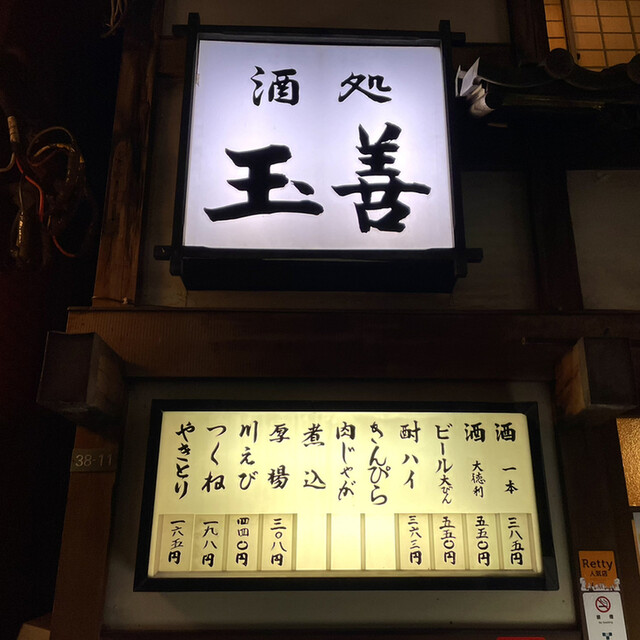 酒処
玉善
酒 一本 三八五円
酒 大徳利 五五〇円
ビール 大びん 五五〇円
酎ハイ 三六三円
きんぴら
肉じゃが
煮込
厚揚 三〇八円
川えび 四四〇円
つくね 一九八円
やきとり 一六五円
38-11
Retty
人気店